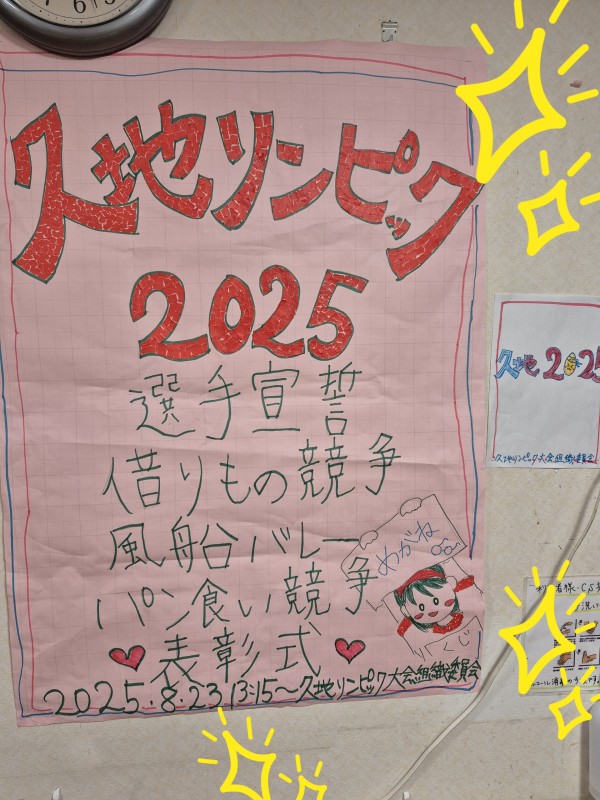 久地リンピック
2025
選手宣誓
借りもの競争
風船バレー
パン食い競争
めがね
表彰式
2025.8.23 13:15～久地リンピック大会組織委員会
久地 2025
久地リンピック大会組織委員会